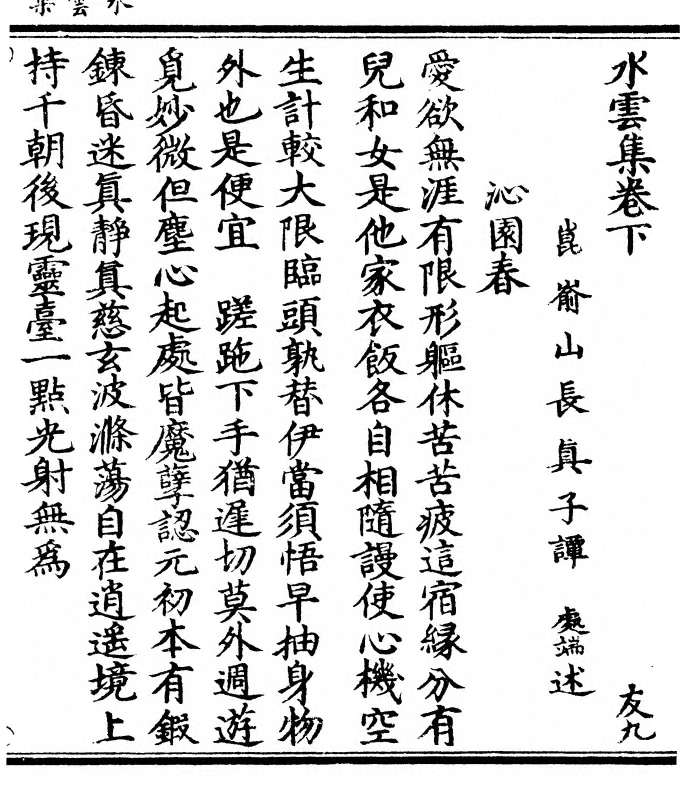 水雲集卷下 友九
崑崳山長眞子譚處端述
沁園春
愛欲無涯有限形軀休苦苦疲這宿緣分有
兒和女是他家衣飯各自相隨謾使心機空
生計較大限臨頭孰替伊當須悟早抽身物
外也是便宜 蹉跎下手猶遲切莫外週遊
覓妙微但塵心起處皆魔孽認元初本有鍛
鍊昏迷眞靜眞慈玄波滌蕩自在逍遥境上
持千朝後現靈臺一點光射無爲